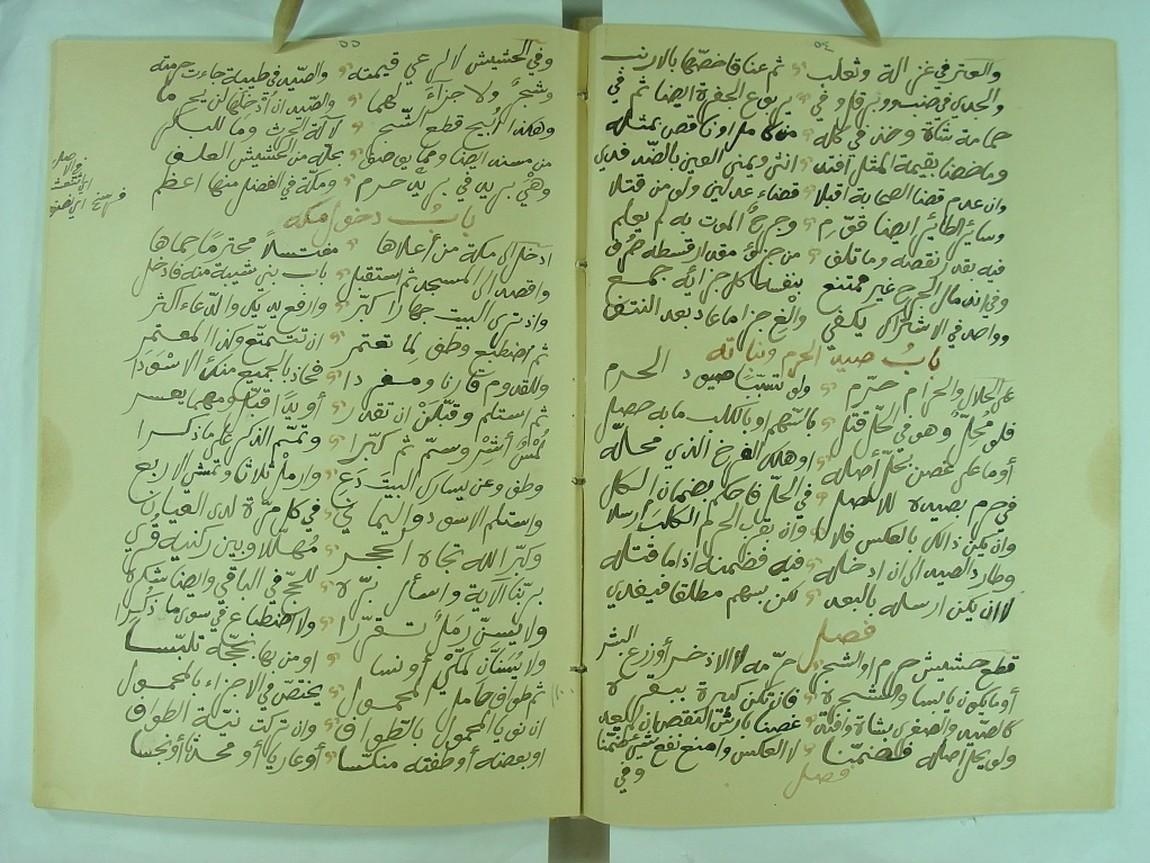 ٥٤
والعنز في غزالة وثعلب ثم عناقا خصها بالارنب
والجدي في ضب وبرقا وفي يربوع الجفرة ايضا ثم في
حمامة شاة وخذ في كله من كامل او ناقص بمثله
وما خصنا بقيمة المثل افتد انثى ويمنى العين بالضد فدي
وان عدم قضا الصحابة اقبلا قضاء عدلين ولو من قتلا
وسائر الطائر ايضا قوم وجرحه الموت به لم يعلم
فيه بقدر نقصه وما تلف من جزئه مقدار قسطه
وفي اندمال الجرح غير ممتنع بنفسه كل جزائه جمع
وواحد في الاشتراك يكفي والغ جزاء ما عاد بعد النتف
باب صيد الحرم ونباته
على الحلال والحرام حرم ولو تسببا صيود الحرم
فلو محل وهو في الحل قتل بالسهم او بالكلب ما به حصل
أو ما على غصن بحل أصله او هلك الفرخ الذي محله
في حرم بصيده للاصل في الحل فاحكم بضمان الكل
وان يكن ذاك بالعكس فلا وان بقرب الحرم الكلب ارسلا
وطارد الصيد الى ان ادخله فيه فضمنه اذا ما قتله
لا ان يكن ارساله بالبعد لكن بسهم مطلقا فيفدي
فصل
قطع حشيش حرم او الشجر حرمه لا الاذخر أو زرع البشر
أو ما يكون يابسا والشجرة فان تكن كبيرة ببقرة
كالصيد والصغرى بشاة وافتد غصنا بارش النقص ان لم يعد
ولو بحل أصله فضمنا لا العكس وامنع نفع شيء ضمنا
فصل
وفي
٥٥
وفي الحشيش لا لرعي قيمته والصيد في طيبة جاءت حرمته
وشجر ولا جزاء لهما والصيد ان أدخلها لن يحرما
وهكذا أبيح قطع الشجر لآلة الحرث وما للبكر
من مسند ايضا ومما يوصف بحله من الحشيش العلف
وهي بريد في بريد حرم ومكة في الفضل منها اعظم
باب دخول مكه
ادخل الى مكة من أعلاها مغتسلا محترما حماها
واقصد الى المسجد ثم استقبل باب بني شيبة منه فادخل
واذ ترى البيت جهارا كبر وارفع يديك والدعاء أكثر
ثم اضطبع وطف لما تعتمر ان تتمتع وكذا المعتمر
وللقدوم قارنا ومفردا فحاذ بالجميع منك الاسودا
ثم استلم وقبلن ان تقدر أو يدا اقبل ومهما يعسر
لمس أشر وسم ثم كبرا وتمم الذكر على ما ذكرا
وطف وعن يسارك البيت دع وارمل ثلاثا وتمشي الاربع
واستلم الاسود واليماني في كل مرة لدى العيان
وكبر الله تجاه الحجر مهللا وبين ركنيه قري
بربنا الآية واسأل بره للحج في الباقي وايضا شكره
ولا يسن رمل تقررا ولا اضطباع في سوى ما ذكرا
ولا يسنان لمكي أو نسا او من بها بحجة تلبسا
ثم طواف حامل لمحمول يختص في الاجزاء بالمحمول
ان نويا المحمول بالطواف وان تركت نية الطواف
او بعضه أو طفته منكسا أو عاريا أو محدثا أو نجسا